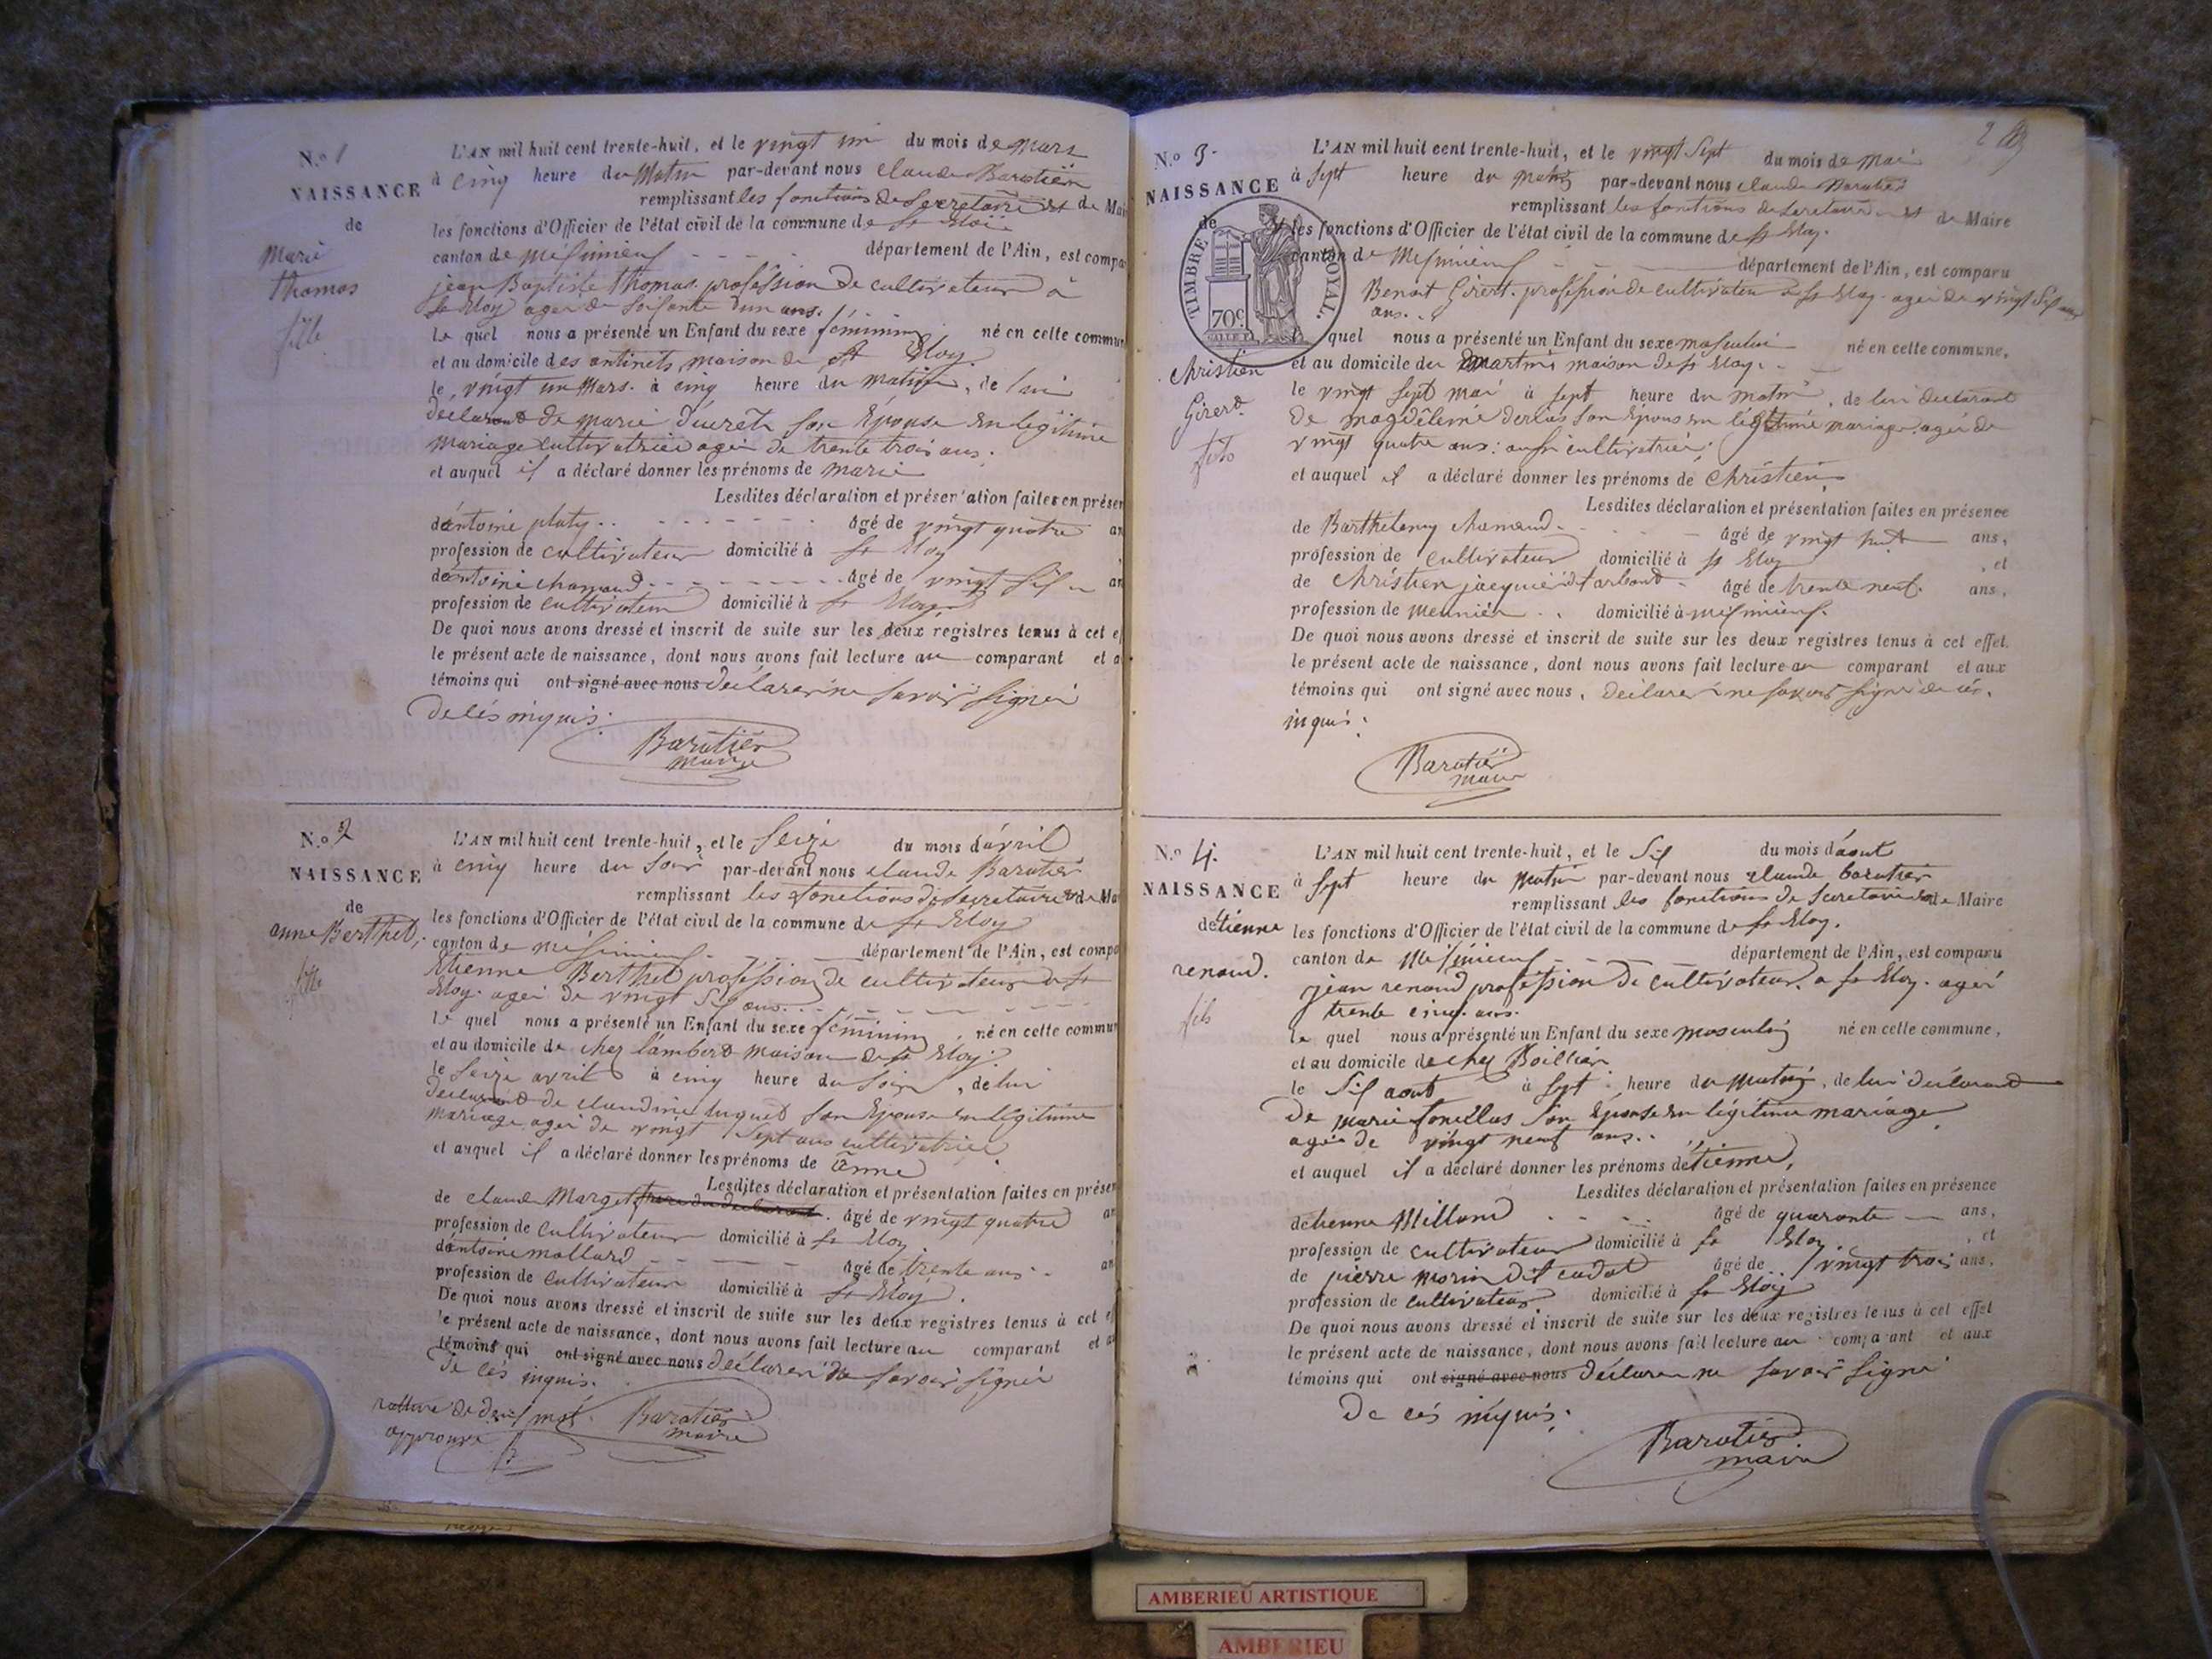 N.o 1
NAISSANCE
de
Marie
Thomas
fille
L'AN mil huit cent trente-huit, et le vingt un du mois de Mars
à cinq heure du Matin par-devant nous Claude Baratier
remplissant les fonctions de Secretaire et de Mai
les fonctions d'Officier de l'état civil de la commune de St Eloi
canton de Mesimieux département de l'Ain, est compa
jean Baptiste Thomas profession de cultivateur à
St Eloy ager de soisante d'un ans.
Le quel nous a présenté un Enfant du sexe féminin né en cette commun
et au domicile des antinets maison de St Eloy.
le vingt un Mars à cinq heure du matin, de lui
declarant de marie son Epouse en légitime
mariage cultivatrice ager de trente trois ans.
et auquel il a déclaré donner les prénoms de marie
Lesdites déclaration et présentation faites en présen
d'antoine platy âgé de vingt quatre an
profession de cultivateur domicilié à St Eloy
d'antoine chamand âgé de vingt six an
profession de cultivateur domicilié à St Eloy
De quoi nous avons dressé et inscrit de suite sur les deux registres tenus à cet e
le présent acte de naissance, dont nous avons fait lecture au comparant et a
témoins qui ont signé avec nous déclarer ne savoir signer
de cés inquis.
Baratier
maire
N.o 2
NAISSANCE
de
anne Berthet
fille
L'AN mil huit cent trente-huit, et le Seize du mois d'avril
à cinq heure du Soir par-devant nous claude Baratier
remplissant les fonctions de Secretaire et de Ma
les fonctions d'Officier de l'état civil de la commune de St Eloy
canton de mésimieux département de l'Ain, est compa
Etienne Berthet profession de cultivateur a St
Eloy. ager de vingt six ans.
le quel nous a présenté un Enfant du sexe féminin, né en cette commun
et au domicile de chez lambert maison de St Eloy.
le Seize avril à cinq heure du Soir, de lui
declarant de claudine luquet son Epouse en légitime
mariage ager de vingt Sept ans cultivatrice
et auquel il a déclaré donner les prénoms de anne
Lesdites déclaration et présentation faites en présen
de claude Marget frere du declarant. âgé de vingt quatre an
profession de cultivateur domicilié à St Eloy
d'antoine mollard âgé de trente ans an
profession de cultivateur domicilié à St Eloy.
De quoi nous avons dressé et inscrit de suite sur les deux registres tenus à cet e
le présent acte de naissance, dont nous avons fait lecture au comparant et a
témoins qui ont signé avec nous déclarer ne savoir signer
de cés inquis.
rature de deux mot
approuvé
Baratier
maire
2
N.o 3.
NAISSANCE
de
Christien
Girerd
fils
TIMBRE ROYAL.
70c
L'AN mil huit cent trente-huit, et le vingt Sept du mois de Mai
à Sept heure du matin par-devant nous claude Baratier
remplissant les fonctions de Secretaire et de Maire
les fonctions d'Officier de l'état civil de la commune de St Eloy.
canton de Mesimieux département de l'Ain, est comparu
Benoit Girerd. profession de cultivateur a St Eloy. ager de vingt Six ans
ans.
le quel nous a présenté un Enfant du sexe masculin né en cette commune,
et au domicile du martin maison de St Eloy.
le vingt Sept mai à Sept heure du matin, de lui declarant
de magdeleine son Epouse en légitime mariage. ager de
vingt quatre ans: aussi cultivatrice.
et auquel il a déclaré donner les prénoms de Christien
Lesdites déclaration et présentation faites en présence
de Barthelemy chamand. âgé de vingt huit ans,
profession de cultivateur domicilié à St Eloy, et
de Christien jacquier dit âgé de trente neuf. ans,
profession de meunier domicilié à mesimieux.
De quoi nous avons dressé et inscrit de suite sur les deux registres tenus à cet effet.
le présent acte de naissance, dont nous avons fait lecture au comparant et aux
témoins qui ont signé avec nous, déclarer ne savoir signé de cés.
inquis.
Baratier
maire
N.o 4.
NAISSANCE
d'étienne
renaud.
fils
L'AN mil huit cent trente-huit, et le Six du mois d'aout
à Sept heure du Matin par-devant nous claude baratier
remplissant les fonctions de Secretaire et de Maire
les fonctions d'Officier de l'état civil de la commune de St Eloy.
canton de Mesimieux département de l'Ain, est comparu
jean renaud profession de cultivateur a St Eloy. ager
trente cinq ans.
le quel nous a présenté un Enfant du sexe masculin né en cette commune,
et au domicile de chez
le Six aout à Sept heure du Matin, de lui déclarant
De marie son Epouse en légitime mariage
ager de vingt neuf ans.
et auquel il a déclaré donner les prénoms d'étienne.
Lesdites déclaration et présentation faites en présence
d'étienne Milland âgé de quarante ans,
profession de cultivateur domicilié à St Eloy, et
de pierre morin dit cadet âgé de vingt trois ans,
profession de cultivateur domicilié à St Eloy
De quoi nous avons dressé et inscrit de suite sur les deux registres tenus à cet effet
le présent acte de naissance, dont nous avons fait lecture au comparant et aux
témoins qui ont signé avec nous déclarer ne savoir signé
De cés inquis.
Baratier
maire
AMBERIEU ARTISTIQUE
AMBERIEU